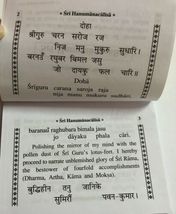 2
• Śrī Hanumānacālīsā •
दोहा
श्रीगुरु चरन सरोज रज
निज मनु मुकुरु सुधारि।
बरनउँ रघुबर बिमल जसु
जो दायकु फल चारि॥
Dohā
Śrīguru carana saroja raja
nija manu mukuru sudhāri,
• Śrī Hanumānacālīsā •
3
baranaũ raghubara bimala jasu
jo dāyaku phala cāri.
Polishing the mirror of my mind with the
pollen dust of Śrī Guru's lotus-feet. I hereby
proceed to narrate unblemished glory of Śrī Rāma,
the bestower of fourfold accomplishments
(Dharma, Artha, Kāma and Mokṣa).
बुद्धिहीन तनु जानिके
सुमिरौं पवन-कुमार।